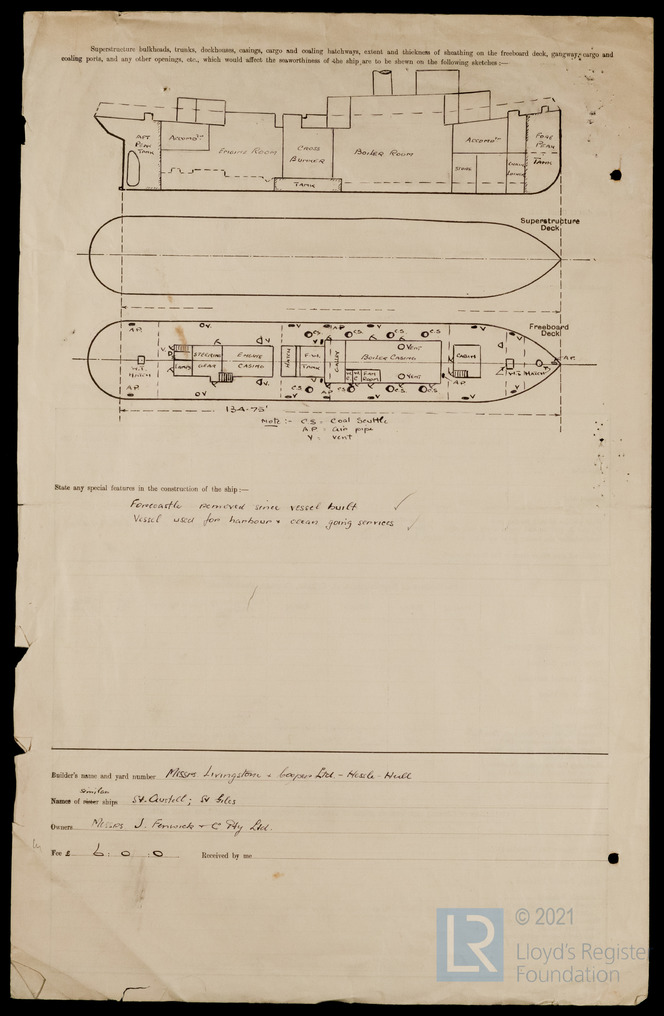 Superstructure bulkheads, trunks, deckhouses, casings, cargo and coaling hatchways, extent and thickness of sheathing on the freeboard deck, gangway, cargo and
coaling ports, and any other openings, etc., which would affect the seaworthiness of the ship, are to be shewn on the following sketches:—
AFT PEAK TANK
ACCOMDTN
ENGINE ROOM
CROSS BUNKER
TANK
BOILER ROOM
ACCOMDTN
STORE
CHAIN LOCKER
FORE PEAK TANK
Superstructure Deck
Freeboard Deck
A.P. V. V A.P. V V
C.S. C.S. C.S. C.S.
W.T. HATCH
STEERING GEAR
ENGINE CASING
HATCH
F.W. TANK
GALLEY
BOILER CASING
VENT
VENT
FAN ROOM
CABIN
A.P.
W.T. HATCH
A.P.
A.P. V C.S. C.S. C.S. C.S. V
134.75'
Note :- C.S. = Coal Scuttle
A.P. = Air pipe
V = Vent
State any special features in the construction of the ship:—
Forecastle removed since vessel built
Vessel used for harbour & ocean going services
Builder's name and yard number Messrs Livingstone & Cooper Ltd - Hessle - Hull
similar
Names of sister ships St. ; St Giles
Owners Messrs J. Fenwick & Co Pty Ltd.
Fee £ 6 : 0 : 0 Received by me
LR
© 2021
Lloyd's Register
Foundation